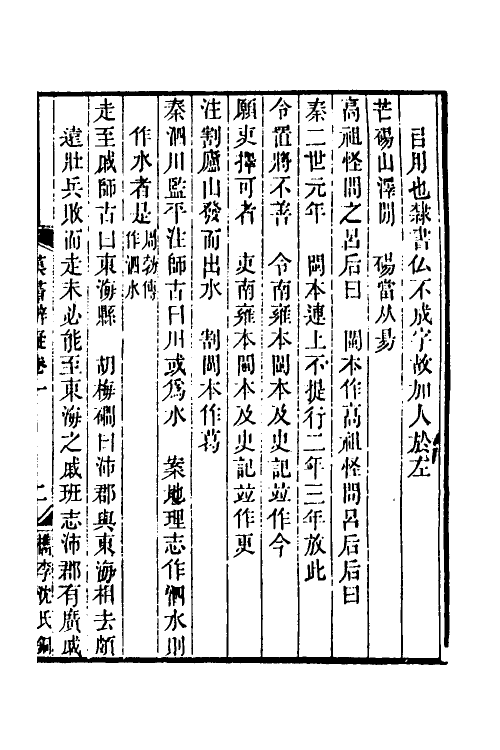 㠯用也隸書仏不成字故加人於左
芒碭山澤閒　碭當从昜
高祖怪問之呂后曰　閩本作高祖怪問呂后后曰
秦二世元年　閩本連上不提行二年三年放此
令置將不善　令南雍本閩本及史記竝作今
願更擇可者　更南雍本閩本及史記竝作更
注割廬山發而出水　割閩本作葛
秦泗川監平注師古曰川或爲水　案地理志作泗水則
作水者是周勃傳作泗水
走至戚師古曰東海縣　胡梅磵曰沛郡與東海相去頗
遠壯兵敗而走未必能至東海之戚班志沛郡有廣戚
漢書辨疑卷一
二
檇李沈氏銅